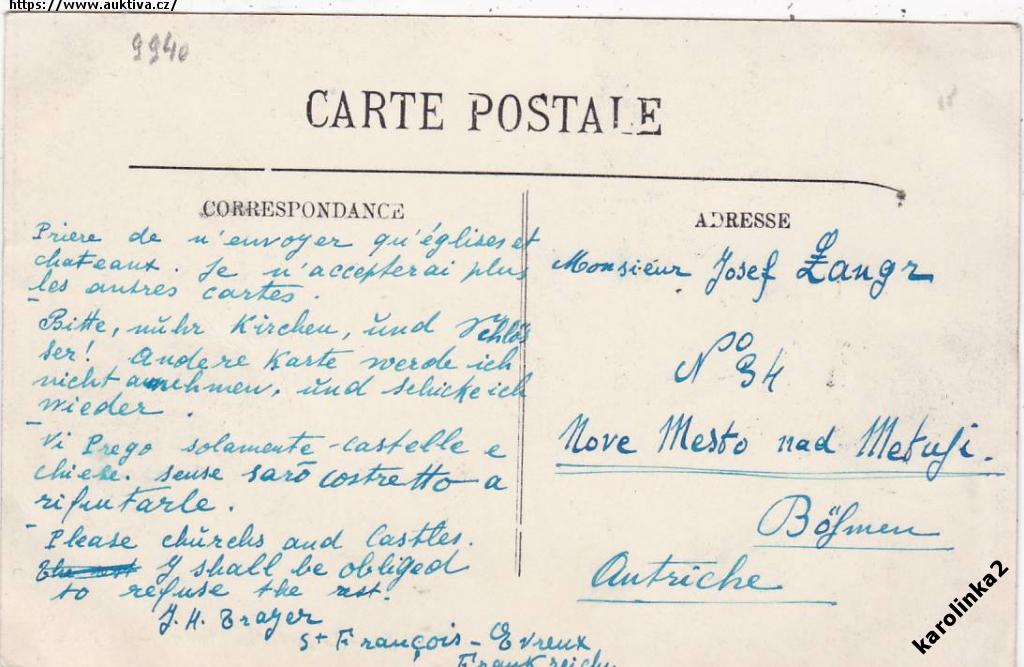 https://www.auktiva.cz/
9940
CARTE POSTALE
CORRESPONDANCE
Priere de n'envoyer qu'églises et
chateaux. Je n'accepterai plus
les autres cartes.
- Bitte, nŭhr Kirchen, ŭnd Schlös
ser! Andere Karte werde ich
nicht annehmen, ŭnd schicke ich
wieder.
- Vi Prego solamente castelle e
chiese. sense sarō costretto a
rifiutarle.
- Please chŭrchs and Castles.
I shall be obliged
to refuse the rest.
J. H. Trayer
St François - Evreux
Frankreich
ADRESSE
Monsieŭr Josef Zangr
No 34
Nove Mesto nad Metuji.
Böhmen
Aŭtriche
karolinka2